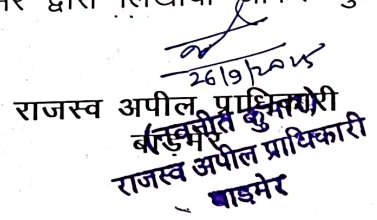 द्वारा
26/9/2025
राजस्व अपील प्राधिकारी
बाड़मेर
(नवनीत कुमार)
राजस्व अपील प्राधिकारी
बाड़मेर